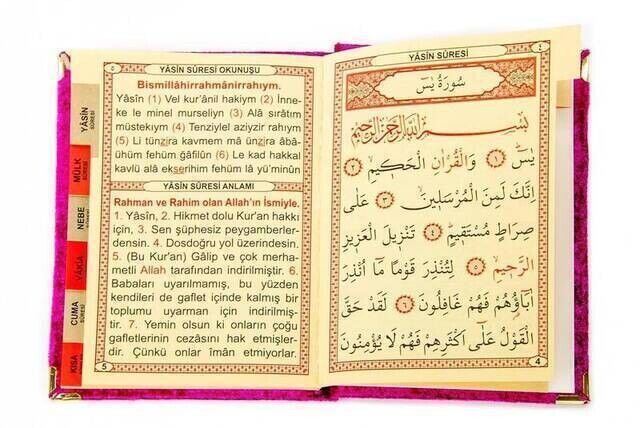 YÂSİN SÛRESİ
٤
سُورَةُ يٰسٓ
بِسْمِ اللّٰهِ الرَّحْمٰنِ الرَّحِيمِ
يٰسٓ ﴿١﴾ وَالْقُرْاٰنِ الْحَكِيمِ ﴿٢﴾
اِنَّكَ لَمِنَ الْمُرْسَلِينَ ﴿٣﴾ عَلٰى
صِرَاطٍ مُسْتَقِيمٍ ﴿٤﴾ تَنْزِيلَ الْعَزِيزِ
الرَّحِيمِ ﴿٥﴾ لِتُنْذِرَ قَوْمًا مَٓا اُنْذِرَ
اٰبَٓاؤُهُمْ فَهُمْ غَافِلُونَ ﴿٦﴾ لَقَدْ حَقَّ
الْقَوْلُ عَلٰٓى اَكْثَرِهِمْ فَهُمْ لَا يُؤْمِنُونَ
4
٥
YÂSİN SÛRESİ OKUNUŞU
Bismillâhirrahmânirrahıym.
Yâsîn (1) Vel kur'ânil hakiym (2) İnne-
ke le minel murseliyn (3) Alâ sırâtım
müstekıym (4) Tenziylel aziyzir rahıym
(5) Li tünzira kavmem mâ ünzira âbâ-
ühüm fehüm ğâfilûn (6) Le kad hakkal
kavlü alâ ekserihim fehüm lâ yü'minûn
YÂSİN SÛRESİ ANLAMI
Rahman ve Rahim olan Allah'ın İsmiyle.
1. Yâsîn, 2. Hikmet dolu Kur'an hakkı
için, 3. Sen şüphesiz peygamberler-
densin. 4. Dosdoğru yol üzerindesin.
5. (Bu Kur'an) Gâlip ve çok merha-
metli Allah tarafından indirilmiştir. 6.
Babaları uyarılmamış, bu yüzden
kendileri de gaflet içinde kalmış bir
toplumu uyarman için indirilmiş-
tir. 7. Yemin olsun ki onların çoğu
gafletlerinin cezasını hak etmişler-
dir. Çünkü onlar îmân etmiyorlar.
5
YÂSİN
SÛRESİ
MÜLK
SÛRESİ
NEBE
SÛRESİ
VAKIA
CUMA
SÛRESİ
KISA